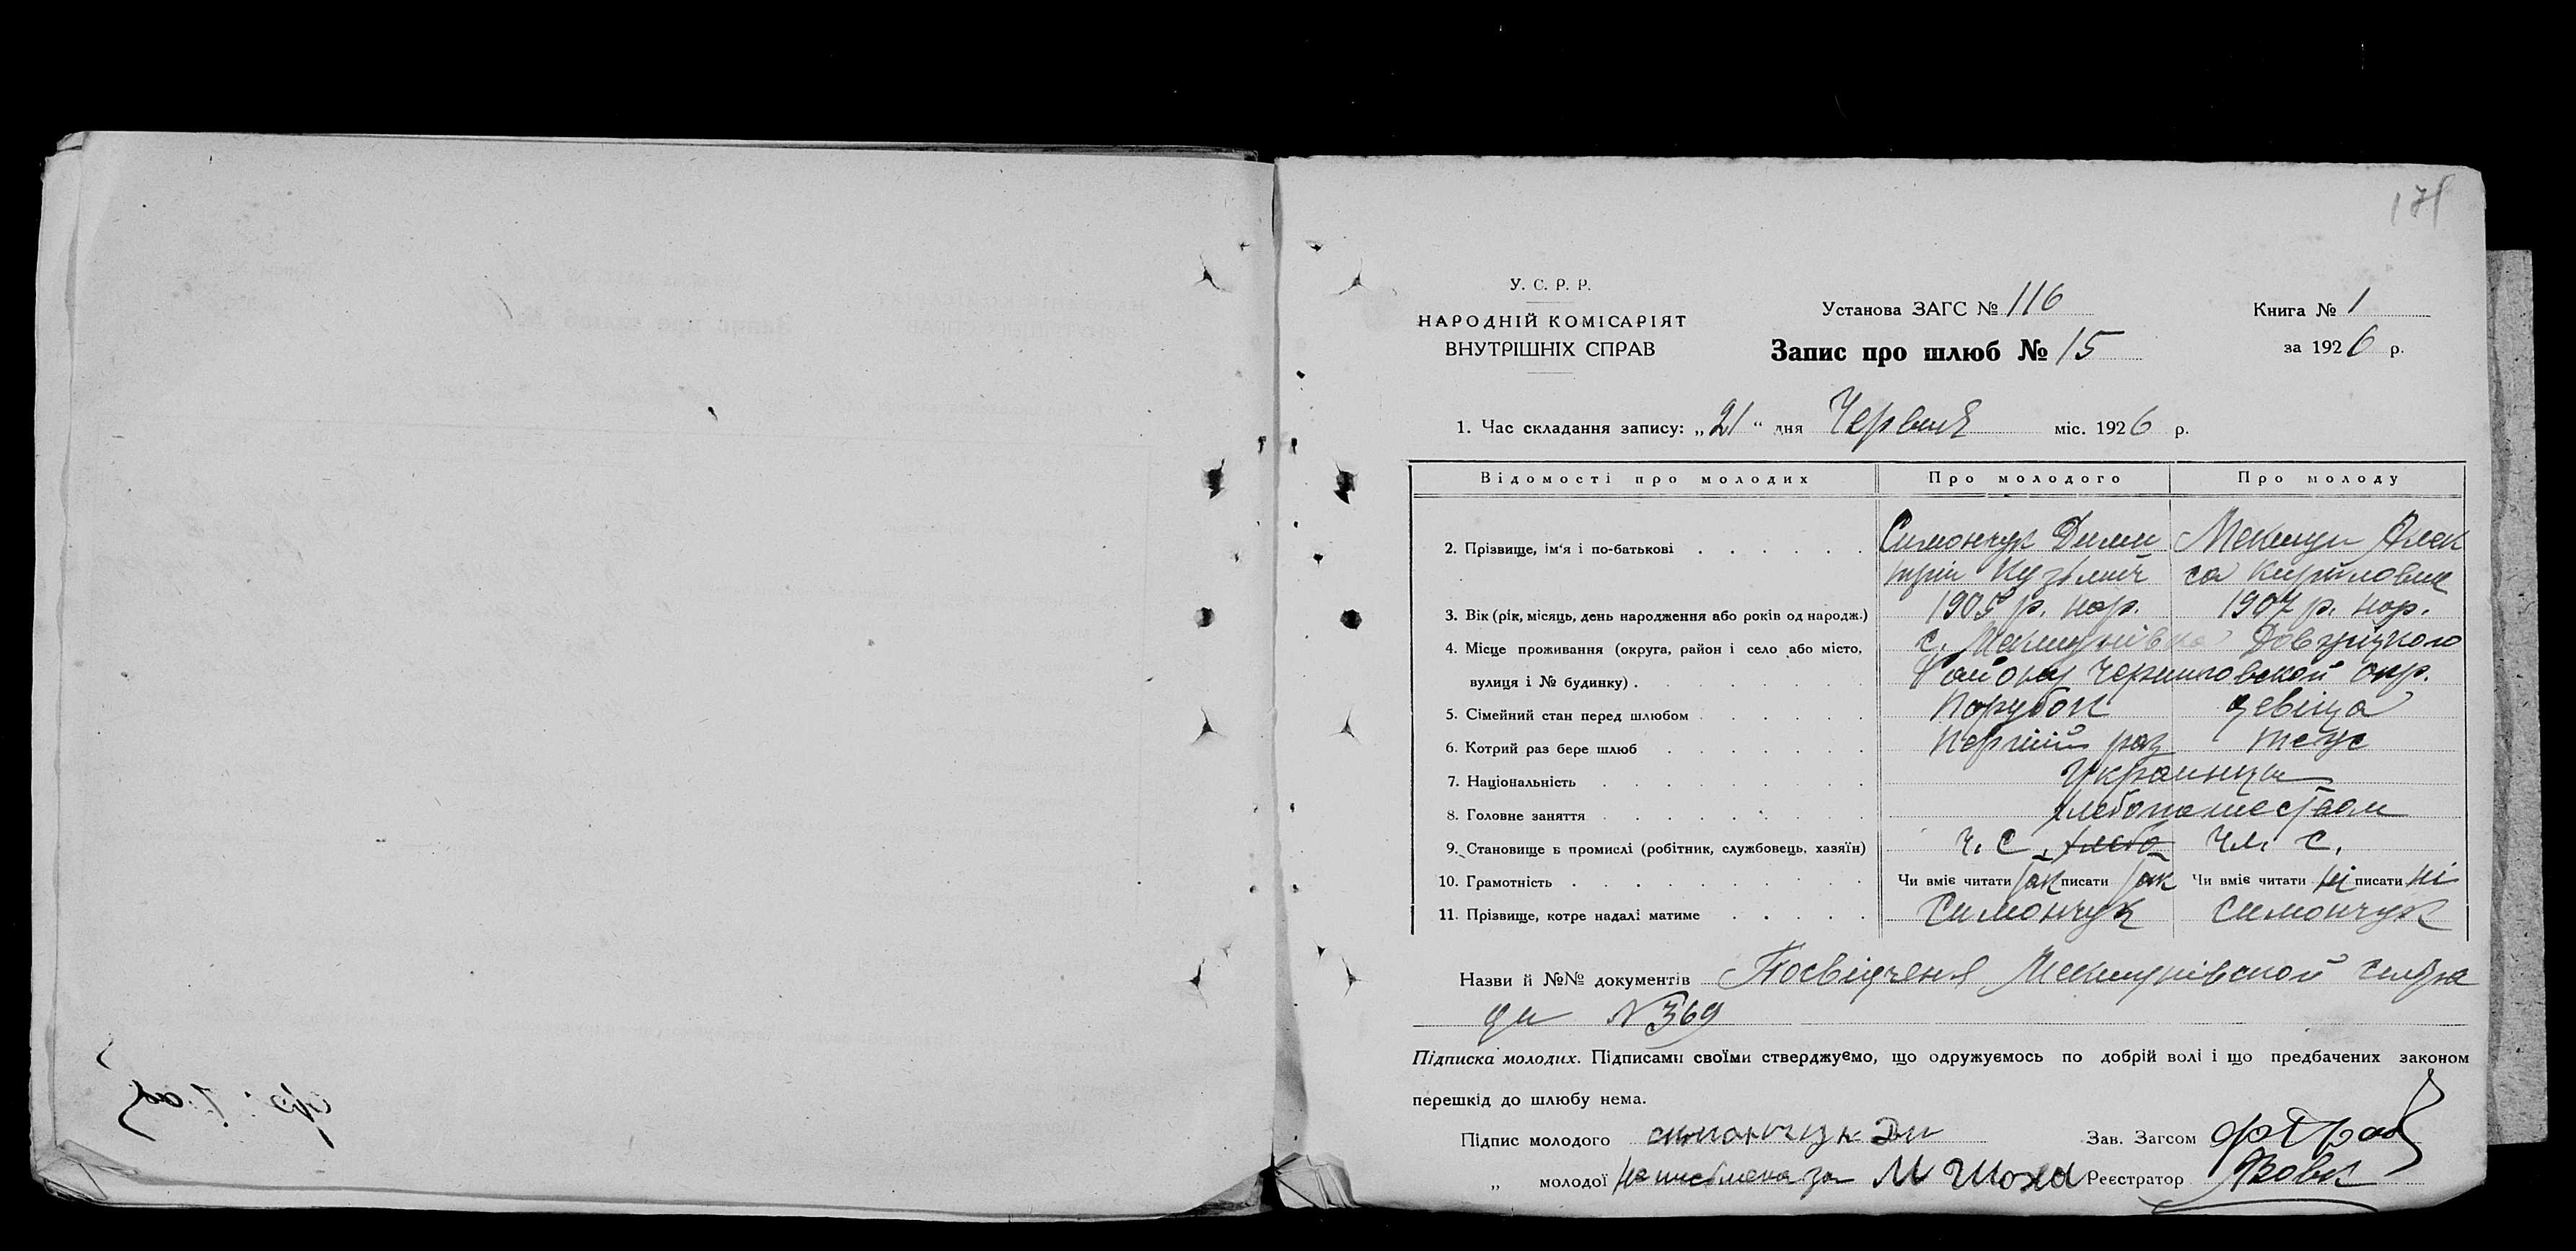 171
У. С. Р. Р.
НАРОДНІЙ КОМІСАРІЯТ
ВНУТРІШНІХ СПРАВ
Установа ЗАГС № 116
Запис про шлюб № 15
Книга № 1
за 1926 р.
1. Час складання запису: „21“ дня Червня міс. 1926 р.
Відомості про молодих Про молодого Про молоду
2. Прізвище, ім'я і по-батькові Симончук Дими Мекшун Алек
трій Кузьмич са Кириловна
3. Вік (рік, місяць, день народження або років од народж.) 1905 р. нар. 1907 р. нар.
4. Місце проживання (округа, район і село або місто, с. Мекшунівка Довжицкого
вулиця і № будинку) району Черниговской окр.
5. Сімейний стан перед шлюбом Порубок девіца
6. Котрий раз бере шлюб Перший раз теж
7. Національність Украинци
8. Головне заняття хлебопашеством
9. Становище в промислі (робітник, службовець, хазяїн) Ч. С. Чл. С.
10. Грамотність Чи вміє читати так писати так Чи вміє читати ні писати ні
11. Прізвище, котре надалі матиме Симончук Симончук
Назви й №№ документів Посвідченя Мекшунівской сильра
ди № 369
Підписка молодих. Підписами своїми стверджуємо, що одружуємось по добрій волі і що предбачених законом
перешкід до шлюбу нема.
Підпис молодого симончук Ди Зав. Загсом
„ молодої неписьмена за М Шоха Реєстратор Вовк